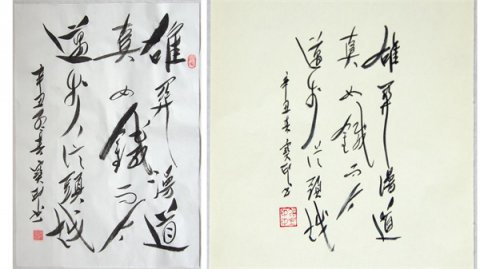 雄關漫道
真如鐵而今
邁步從頭越
辛丑春寶书
雄關漫道
真如鐵而今
邁步從頭越
辛丑春寶